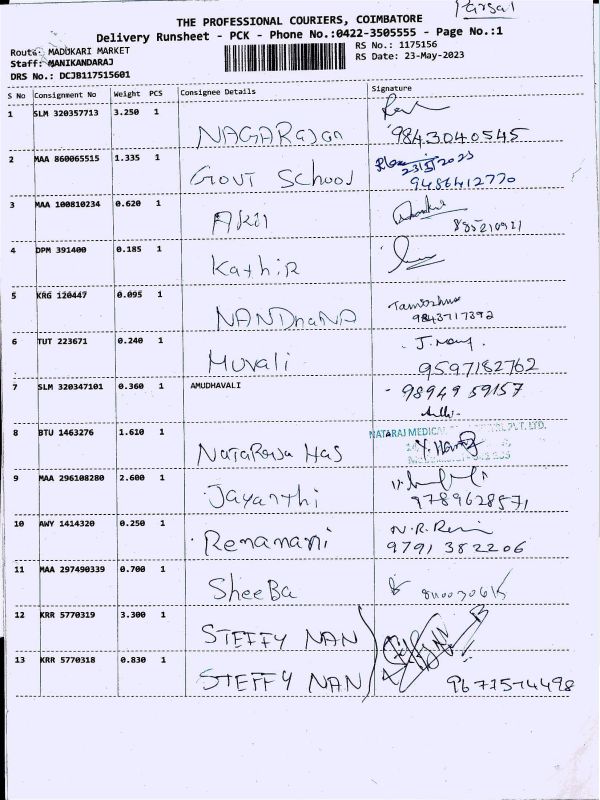 THE PROFESSIONAL COURIERS, COIMBATORE
Delivery Runsheet - PCK - Phone No.:0422-3505555 - Page No.:1
Route: MADUKARI MARKET
RS No.: 1175156
Staff: MANIKANDARAJ
RS Date: 23-May-2023
DRS No.: DCJB117515601
S No Consignment No Weight PCS Consignee Details Signature
1 SLM 320357713 3.250 1 NAGARajan 9843040545
2 MAA 860065515 1.335 1 GOVT School 23/5/2023
9486412770
3 MAA 100810234 0.620 1 Akil
4 DPM 391400 0.185 1 Kathir
5 KRG 120447 0.095 1 NANDhaNA
9843717392
6 TUT 223671 0.240 1 Muvali
9597182762
7 SLM 320347101 0.360 1 AMUDHAVALI 98949 59157
8 BTU 1463276 1.610 1 NATARaja Has NATARAJ MEDICAL PVT. LTD.
9 MAA 296108280 2.600 1 Jayanthi
9789628571
10 AWY 1414320 0.250 1 Remamani N.R.Remi
9791 382206
11 MAA 297490339 0.700 1 SheeBa
12 KRR 5770319 3.300 1 STEFFY NAN
13 KRR 5770318 0.830 1 STEFFY NAN